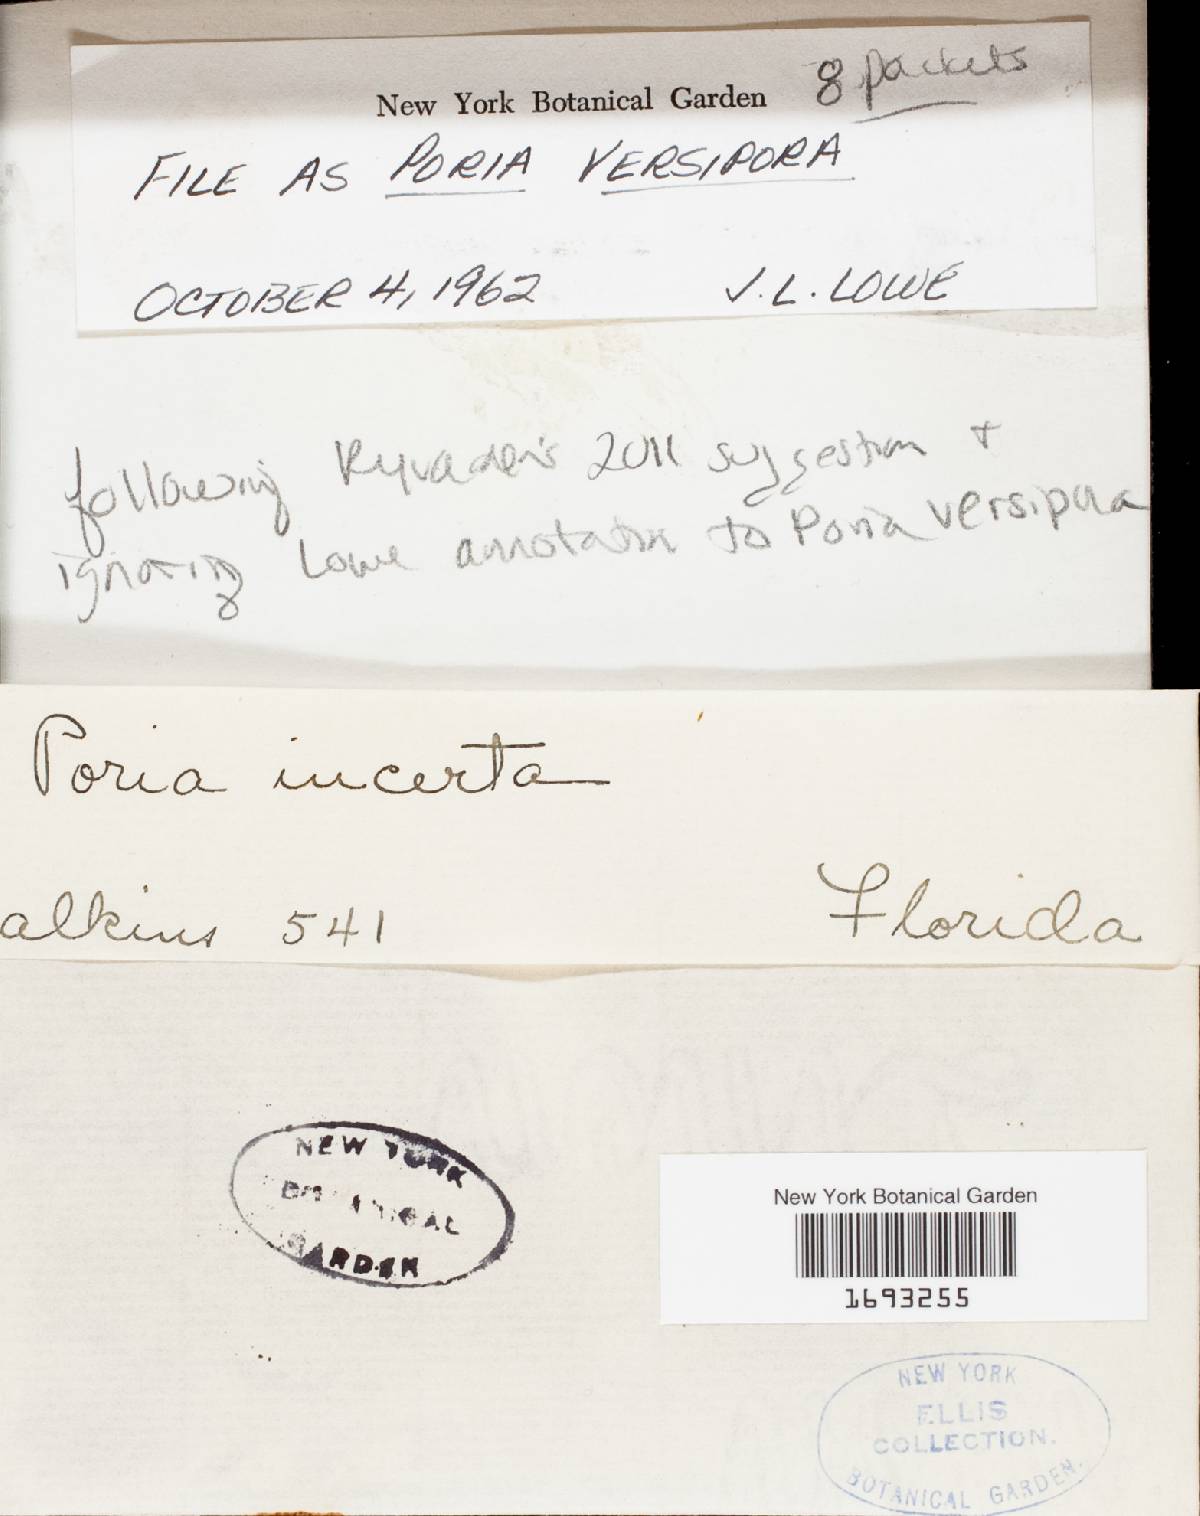 New York Botanical Garden 8 packets
FILE AS PORIA VERSIPORA
OCTOBER 4, 1962 J. L. LOWE
following Ryvarden's 2011 suggestion +
ignoring Lowe annotation to Poria versipora
Poria incerta
alkins 541 Florida
NEW YORK
BOTANICAL
GARDEN
New York Botanical Garden
1693255
NEW YORK
ELLIS
COLLECTION.
BOTANICAL GARDEN.